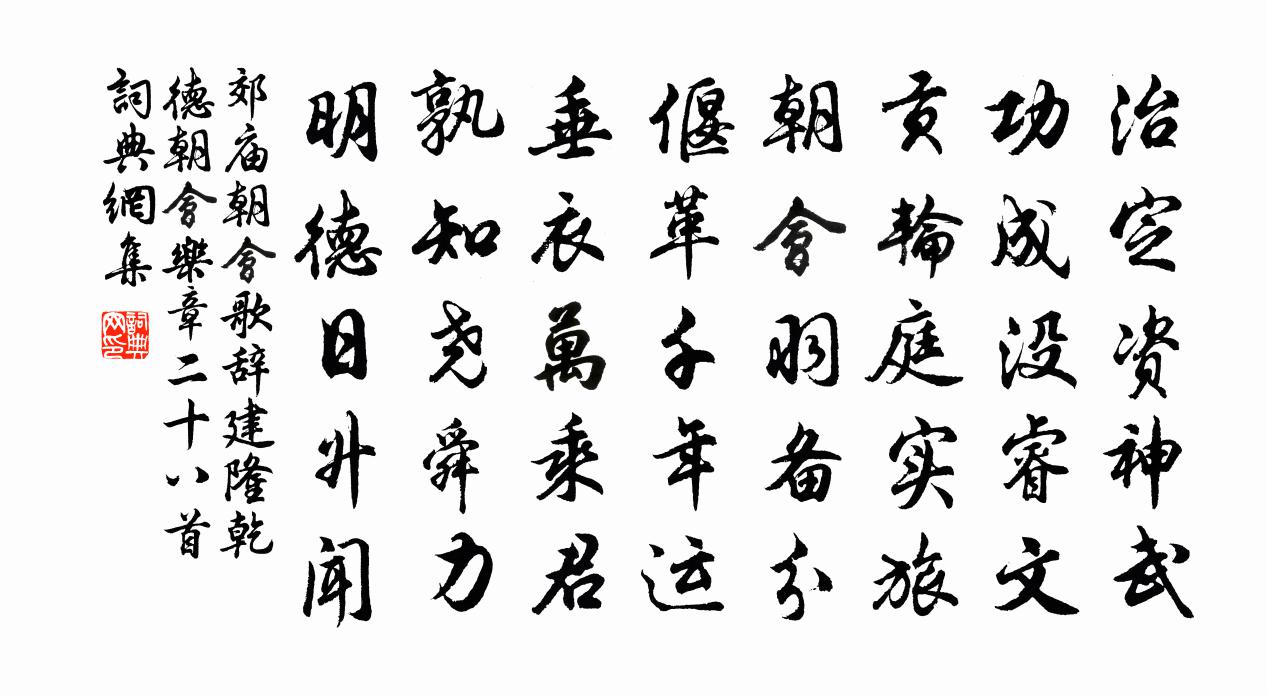 治定资神武
功成没睿文
贡輪庭实旅
朝會羽备分
偃革千年运
垂衣萬乘君
孰知尧舜力
明德日升闻
郊庙朝會歌辞建隆乾
德朝會樂章二十八首
詞典網集
詞典网印